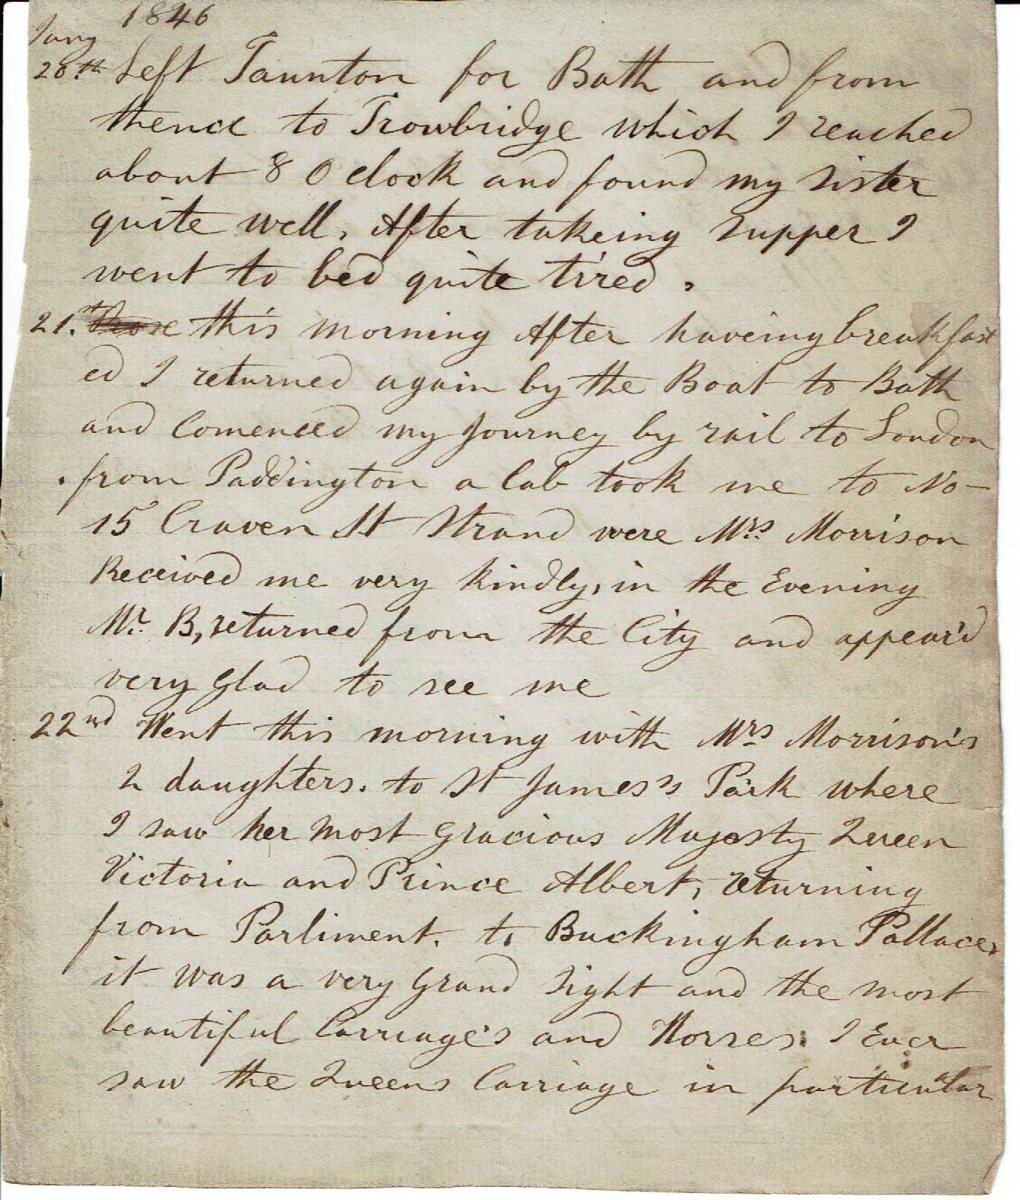 1846
Jany
20th Left Taunton for Bath and from
thence to Trowbridge which I reached
about 8 O clock and found my sister
quite well, After takeing supper I
went to bed quite tired,
21st this morning After haveing breakfast
ed I returned again by the Boat to Bath
and Comenced my Journey by rail to London
from Paddington a Cab took me to No-
15 Craven St Strand were Mrs Morrison
Received me very kindly, in the Evening
Mr. B, returned from the City and appear'd
very glad to see me
22nd Went this morning with Mrs Morrison's
2 daughters. to St James's Park where
I saw her most gracious Majesty Queen
Victoria and Prince Albert, returning
from Parliment. to Buckingham Pallace,
it was a very grand sight and the most
beautiful Carriage's and Horses. I Ever
saw the Queens Carriage in particular